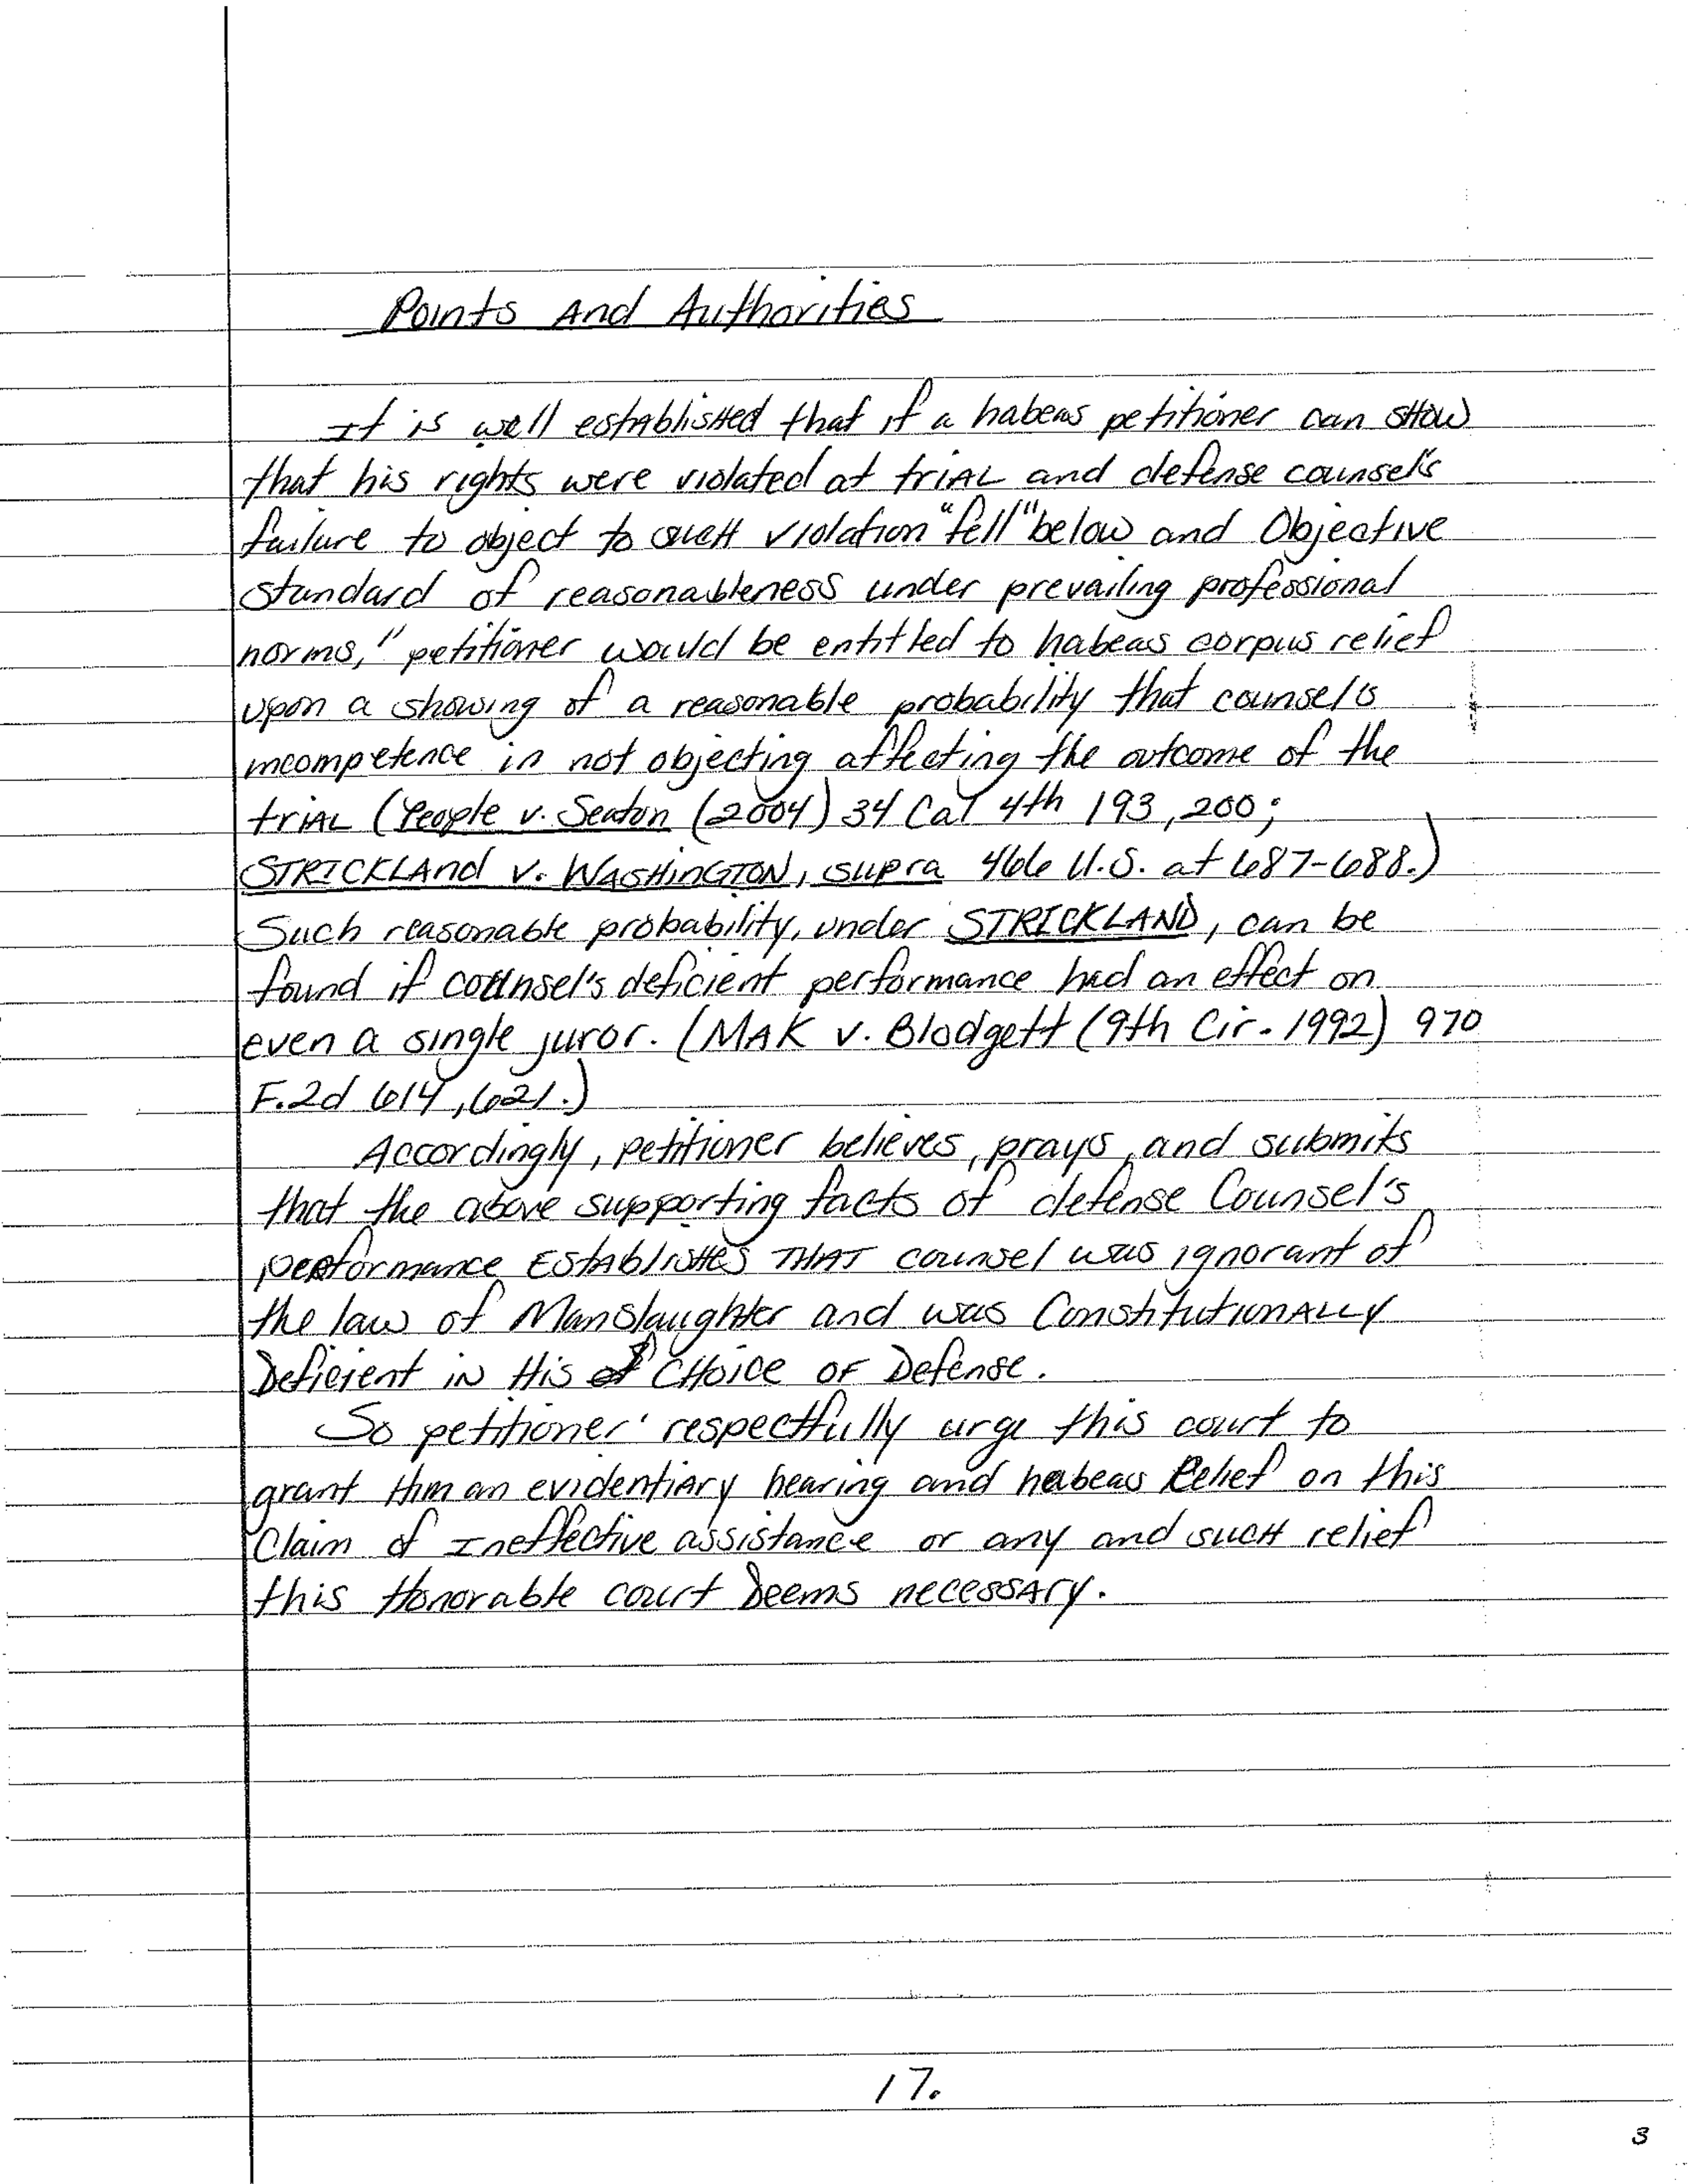 Points And Authorities
It is well established that if a habeas petitioner can show
that his rights were violated at trial and defense counsel's
failure to object to such violation "fell" below and Objective
standard of reasonableness under prevailing professional
norms," petitioner would be entitled to habeas corpus relief
upon a showing of a reasonable probability that counsel's
incompetence in not objecting affecting the outcome of the
trial (People v. Seaton (2004) 34 Cal 4th 193, 200;
STRICKLAnd v. WASHINGTON, supra 466 U.S. at 687-688.)
Such reasonable probability, under STRICKLAND, can be
found if counsel's deficient performance had an effect on
even a single juror. (MAK v. Blodgett (9th Cir. 1992) 970
F.2d 614, 621.)
Accordingly, petitioner believes, prays, and submits
that the above supporting facts of defense Counsel's
performance EstablisHes THAT counsel was ignorant of
the law of Manslaughter and was ConstitutionALLY
Deficient in His CHoice OF Defense.
So petitioner' respectfully urge this court to
grant Him an evidentiary hearing and habeas Relief on this
Claim of Ineffective assistance or any and sucH relief
this Honorable court Deems necessary.
17.
3